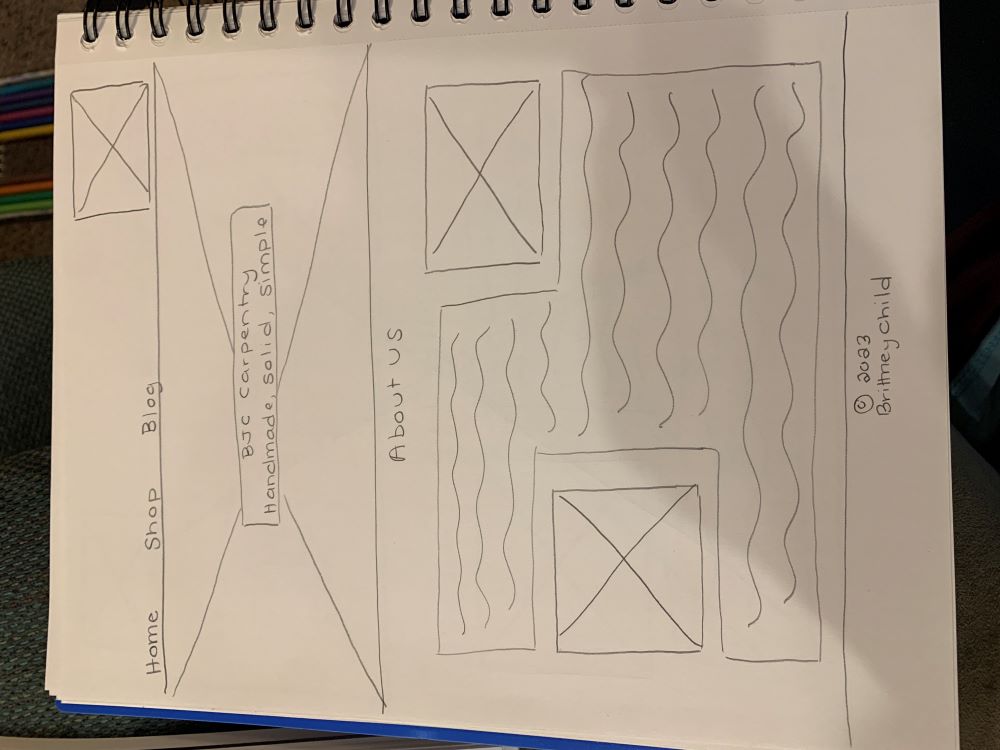 Home Shop Blog
BJC Carpentry
Handmade, Solid, Simple
About US
© 2023
Brittney Child